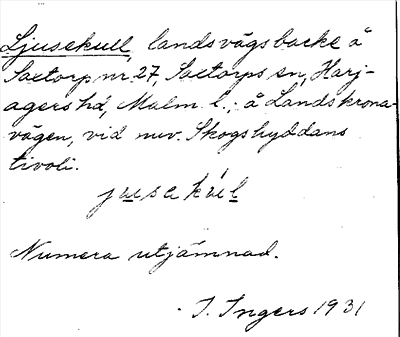 Ljusekull, landsvägsbacke å
Saxtorp nr. 27, Saxtorps sn, Harj-
agers hd, Malm. l.; å Landskrona-
vägen, vid nuv. Skogshyddans
tivoli.
jusekul
Numera utjämnad.
I. Ingers 1931